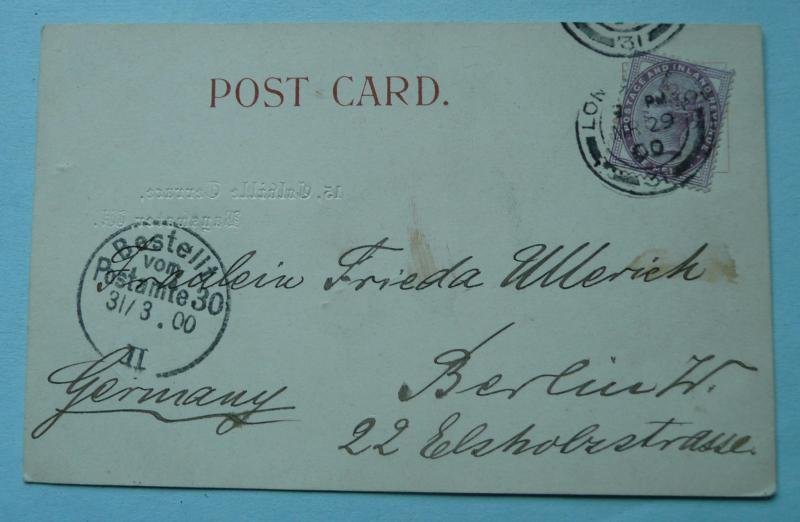 31
POST CARD.
LON
PM
29
00
31
POSTAGE AND INLAND REVENUE
15.
Terrace.
Bestellt
vom
Postamte 30
31/3.00
II
Fräulein Frieda Ullerich
Berlin W.
Germany
22 Elsholzstrasse.